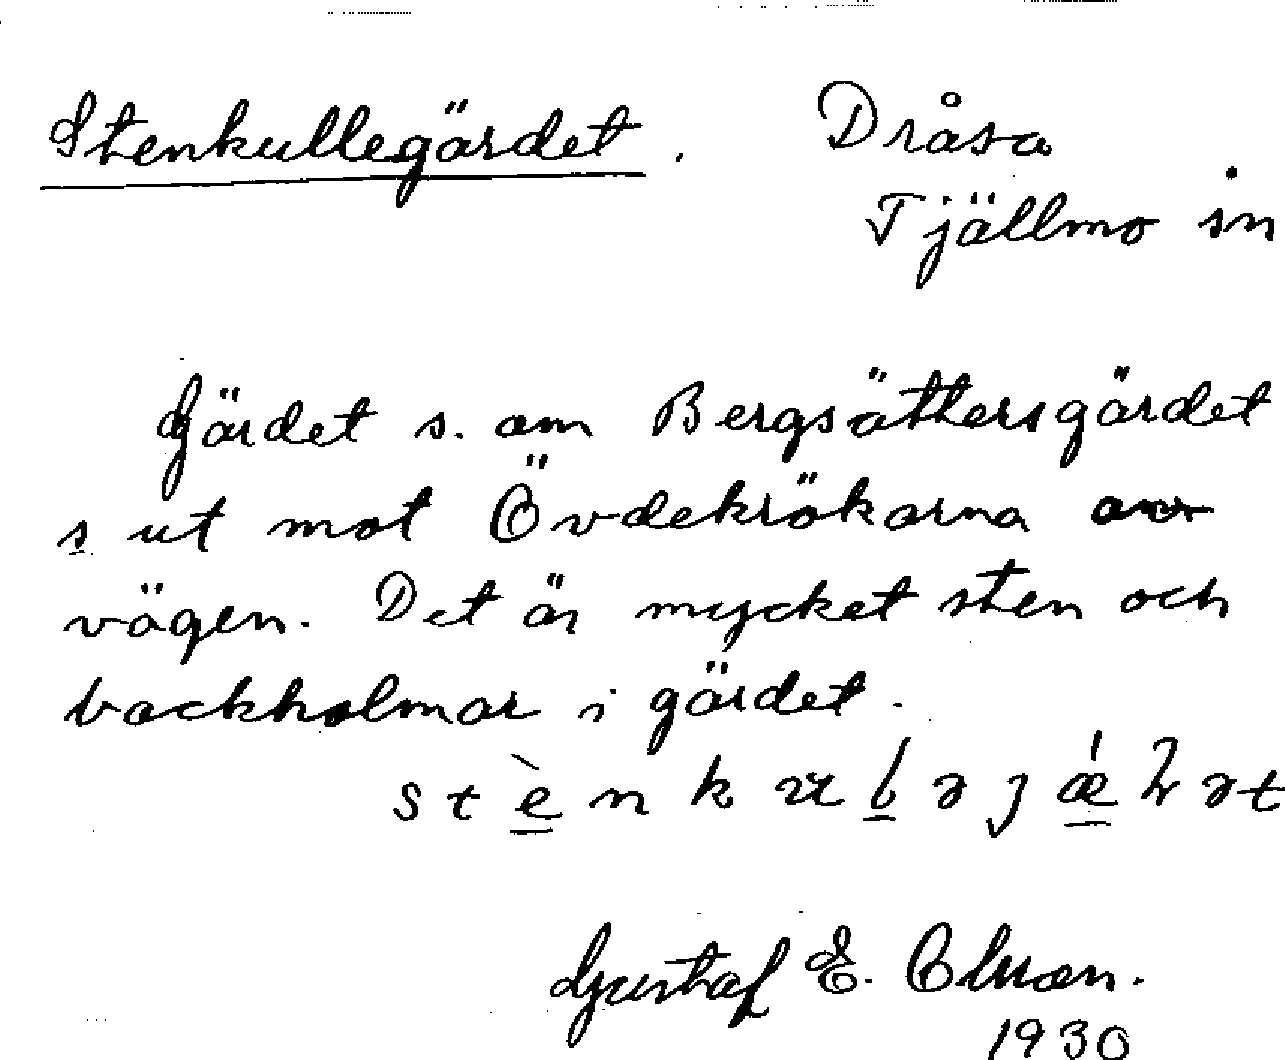 Stenkullegärdet. Dråsa
Tjällmo sn
Gärdet s. om Bergsättersgärdet
s ut mot Övdekrökarna av
vägen. Det är mycket sten och
backholmar i gärdet.
Gustaf E.
1930